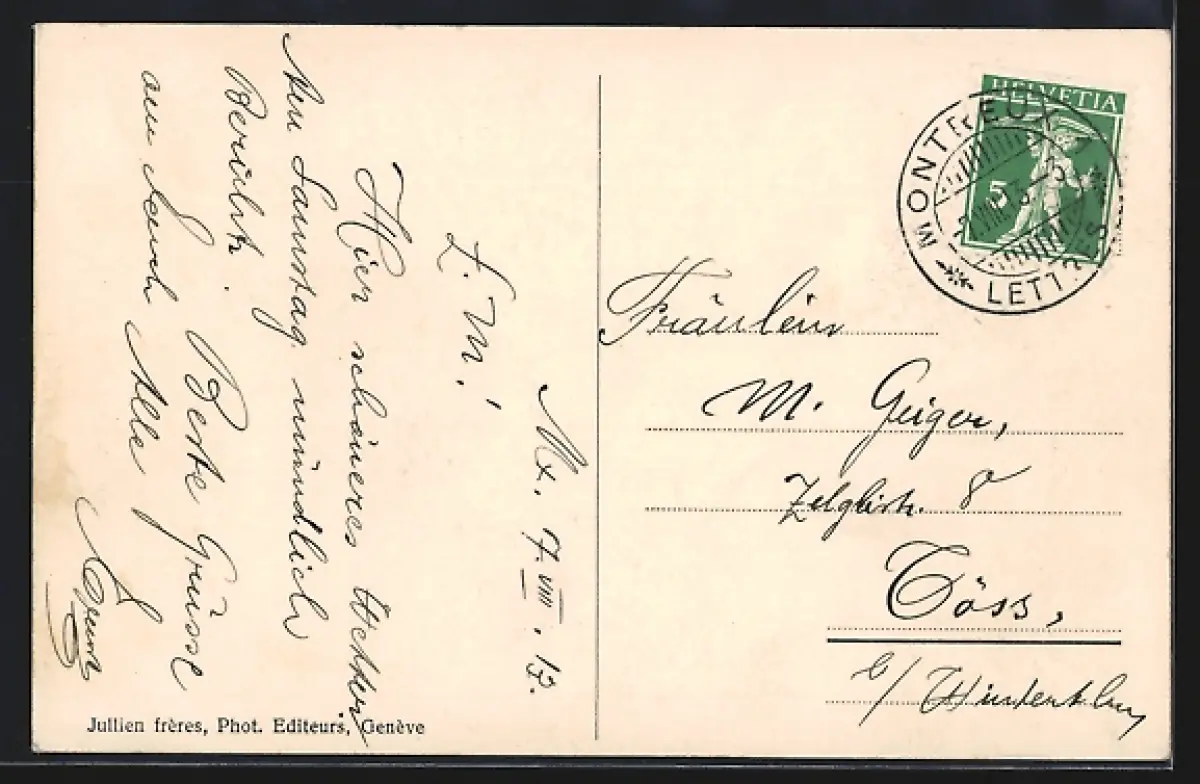 Mx. 7. VIII. 13.
L. M.!
Hier schöneres Wetter,
Am Samstag mündlich
Bericht. Beste Grüsse
an Euch Alle
Jullien frères, Phot. Editeurs, Genève
HELVETIA
5
MONTREUX 1
LETTRES
VIII. 13
Fräulein
M. Geiger,
Zelglistr. 8
Töss,
b/ Winterthur